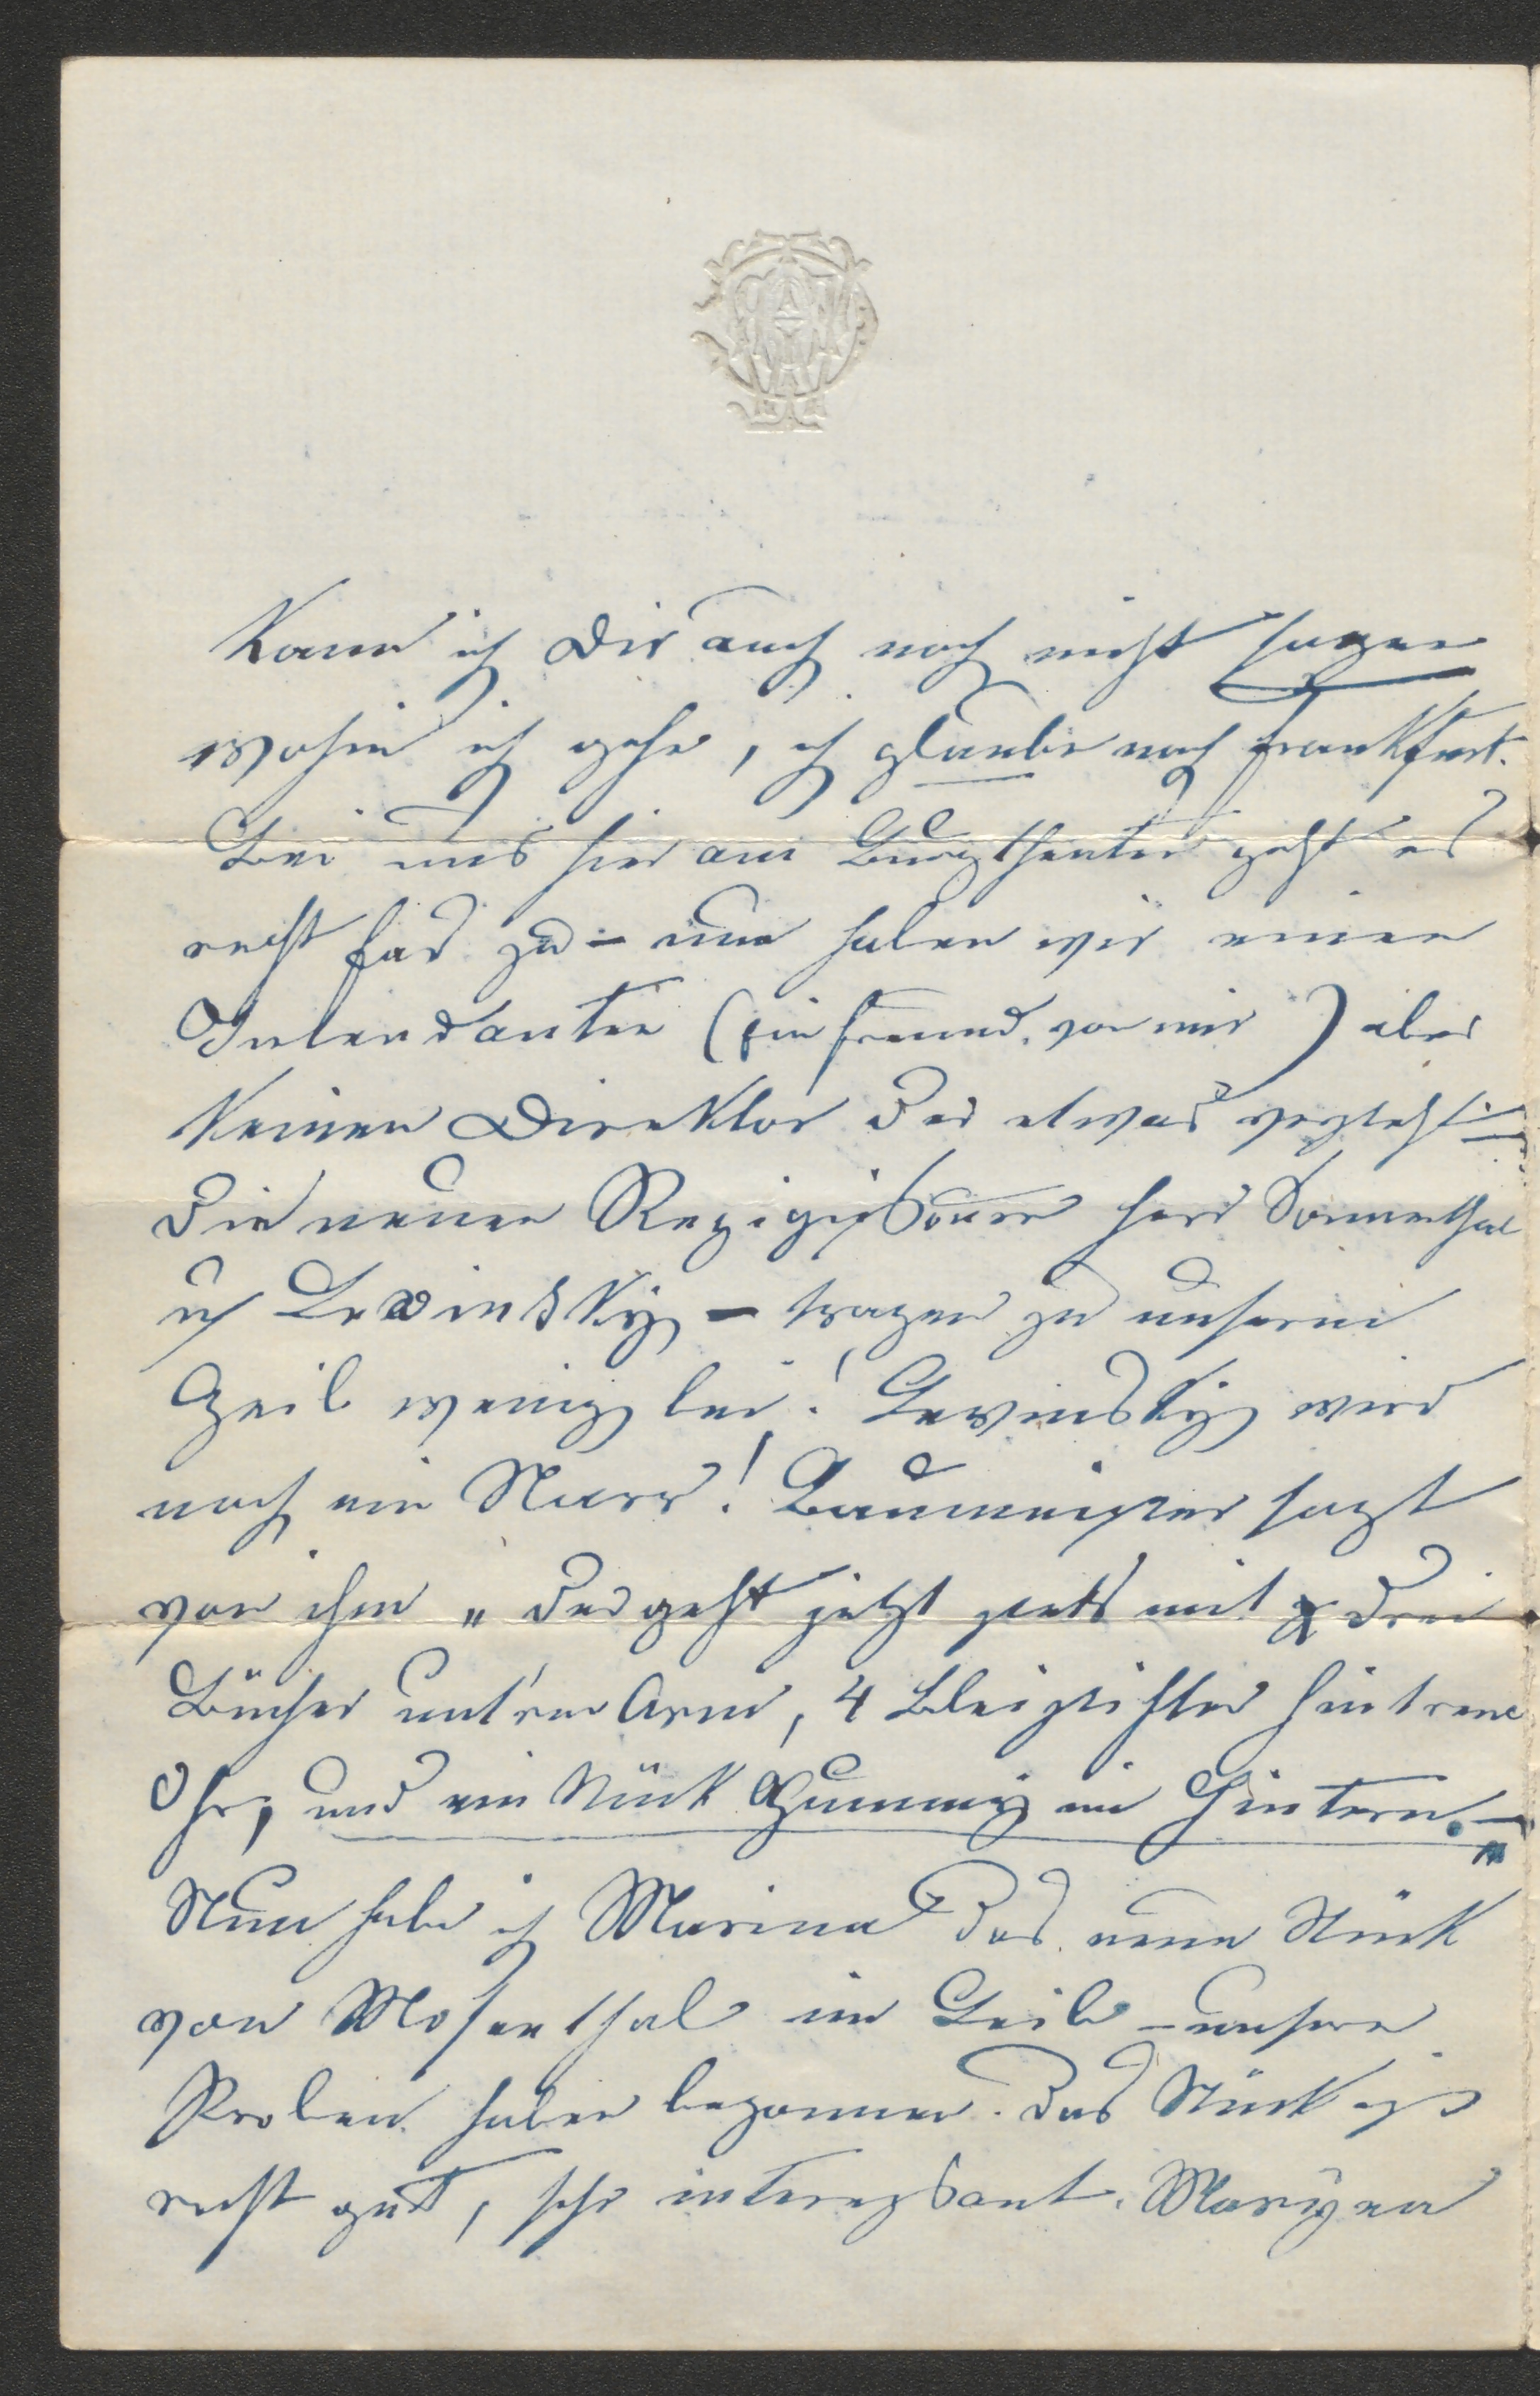 Kann ich Dir auch noch nicht sagen
wohin ich gehe, ich glaube nach Frankfurt.
Bei uns hier am Burgtheater geht es
recht fad zu – nun haben wir einen
Intendanten (ein Freund von mir) aber
keinen Direktor der etwas versteht –
die neuen Regigisseure Herr Sonnenthal
u Lewinsky – tragen zu unserem
Heil wenig bei! Lewinsky wird
noch ein Narr! Baumeister sagt
von ihm „der geht jetzt stets mit drei
Bücher unt'rm Arm, 4 Bleistifter hintrem
Ohr, und ein Stück Gummy im Hintern. – "
Nun habe ich Marina das neue Stück
von Mosenthal im Leib – unsere
Proben haben begonnen. Das Stück ist
recht gut, sehr interessant. Maryna